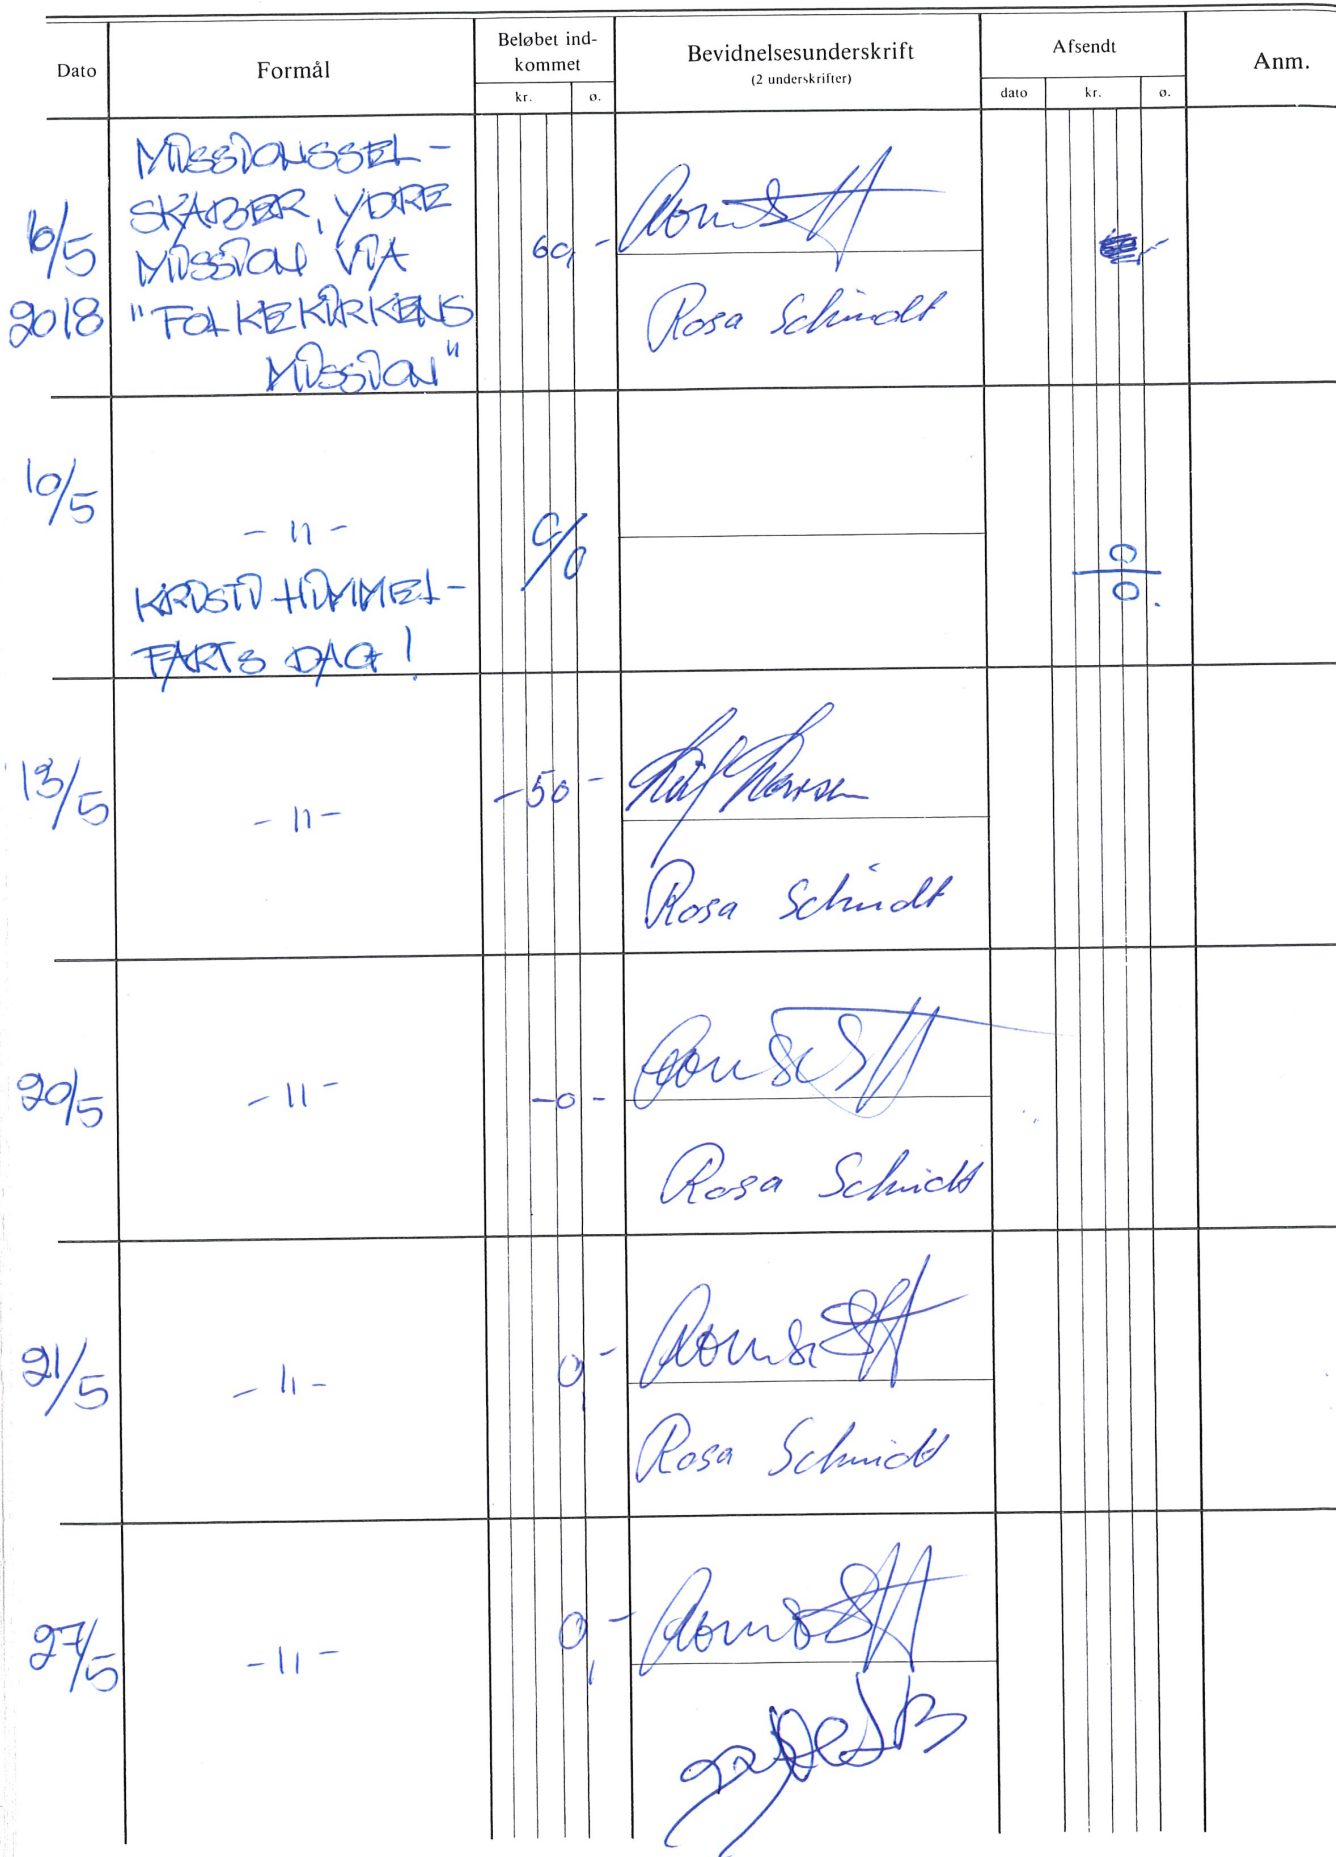 Dato
Formål
Beløbet ind-
kommet
kr. ø.
Bevidnelsesunderskrift
(2 underskrifter)
Afsendt
dato kr. ø.
Anm.
6/5
2018
MISSIONSSEL-
SKABER, YDRE
MISSION VIA
"FOLKEKIRKENS
MISSION"
60,-
Rosa Schmidt
10/5
- 11 -
KRISTI HIMMEL-
FARTS DAG!
0/0
0/0.
13/5
- 11 -
- 50 -
Rosa Schmidt
20/5
- 11 -
- 0 -
Rosa Schmidt
21/5
- 11 -
0,-
Rosa Schmidt
27/5
- 11 -
0,-